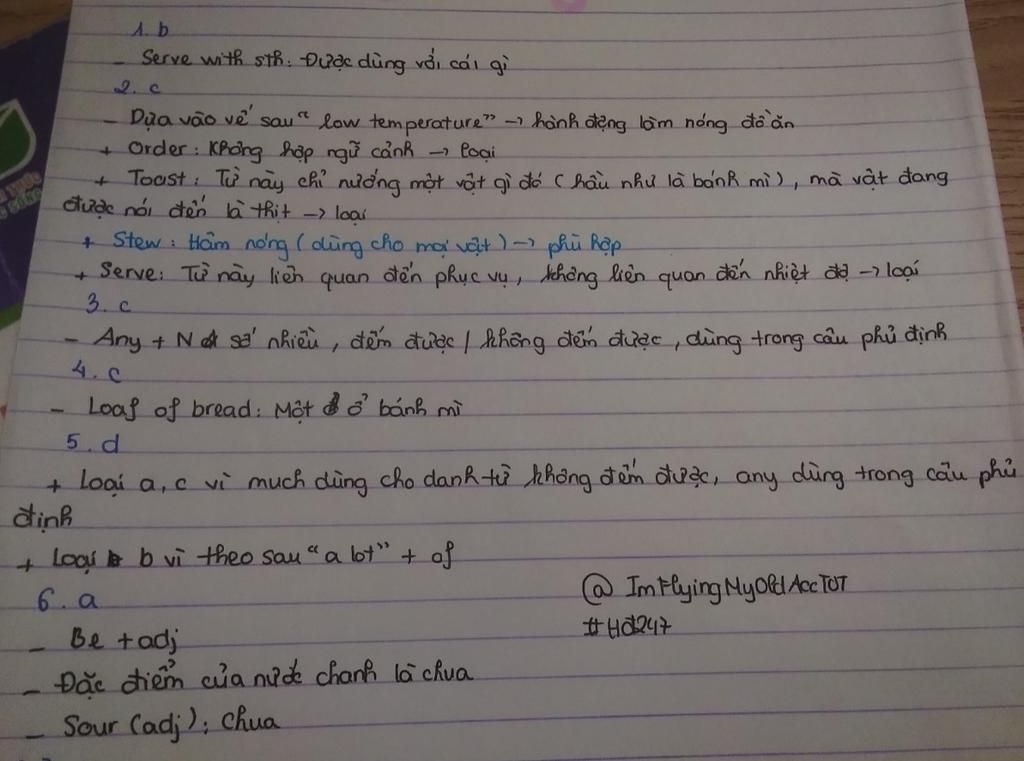 1. b
- Serve with sth: Được dùng với cái gì
2. c
- Dựa vào vế sau "low temperature" → hành động làm nóng đồ ăn
+ Order: Không hợp ngữ cảnh → loại
+ Toast: Từ này chỉ nướng một vật gì đó (hầu như là bánh mì), mà vật đang
được nói đến là thịt → loại
+ Stew: Hầm nóng (dùng cho mọi vật) → phù hợp
+ Serve: Từ này liên quan đến phục vụ, không liên quan đến nhiệt độ → loại
3. c
- Any + N số nhiều, đếm được / không đếm được, dùng trong câu phủ định
4. c
- Loaf of bread: Một ổ bánh mì
5. d
+ Loại a, c vì much dùng cho danh từ không đếm được, any dùng trong câu phủ
định
+ Loại b vì theo sau "a lot" + of
6. a
@ImFlyingMyOldAccTOT
- Be + adj
#Hd247
- Đặc điểm của nước chanh là chua
- Sour (adj): chua